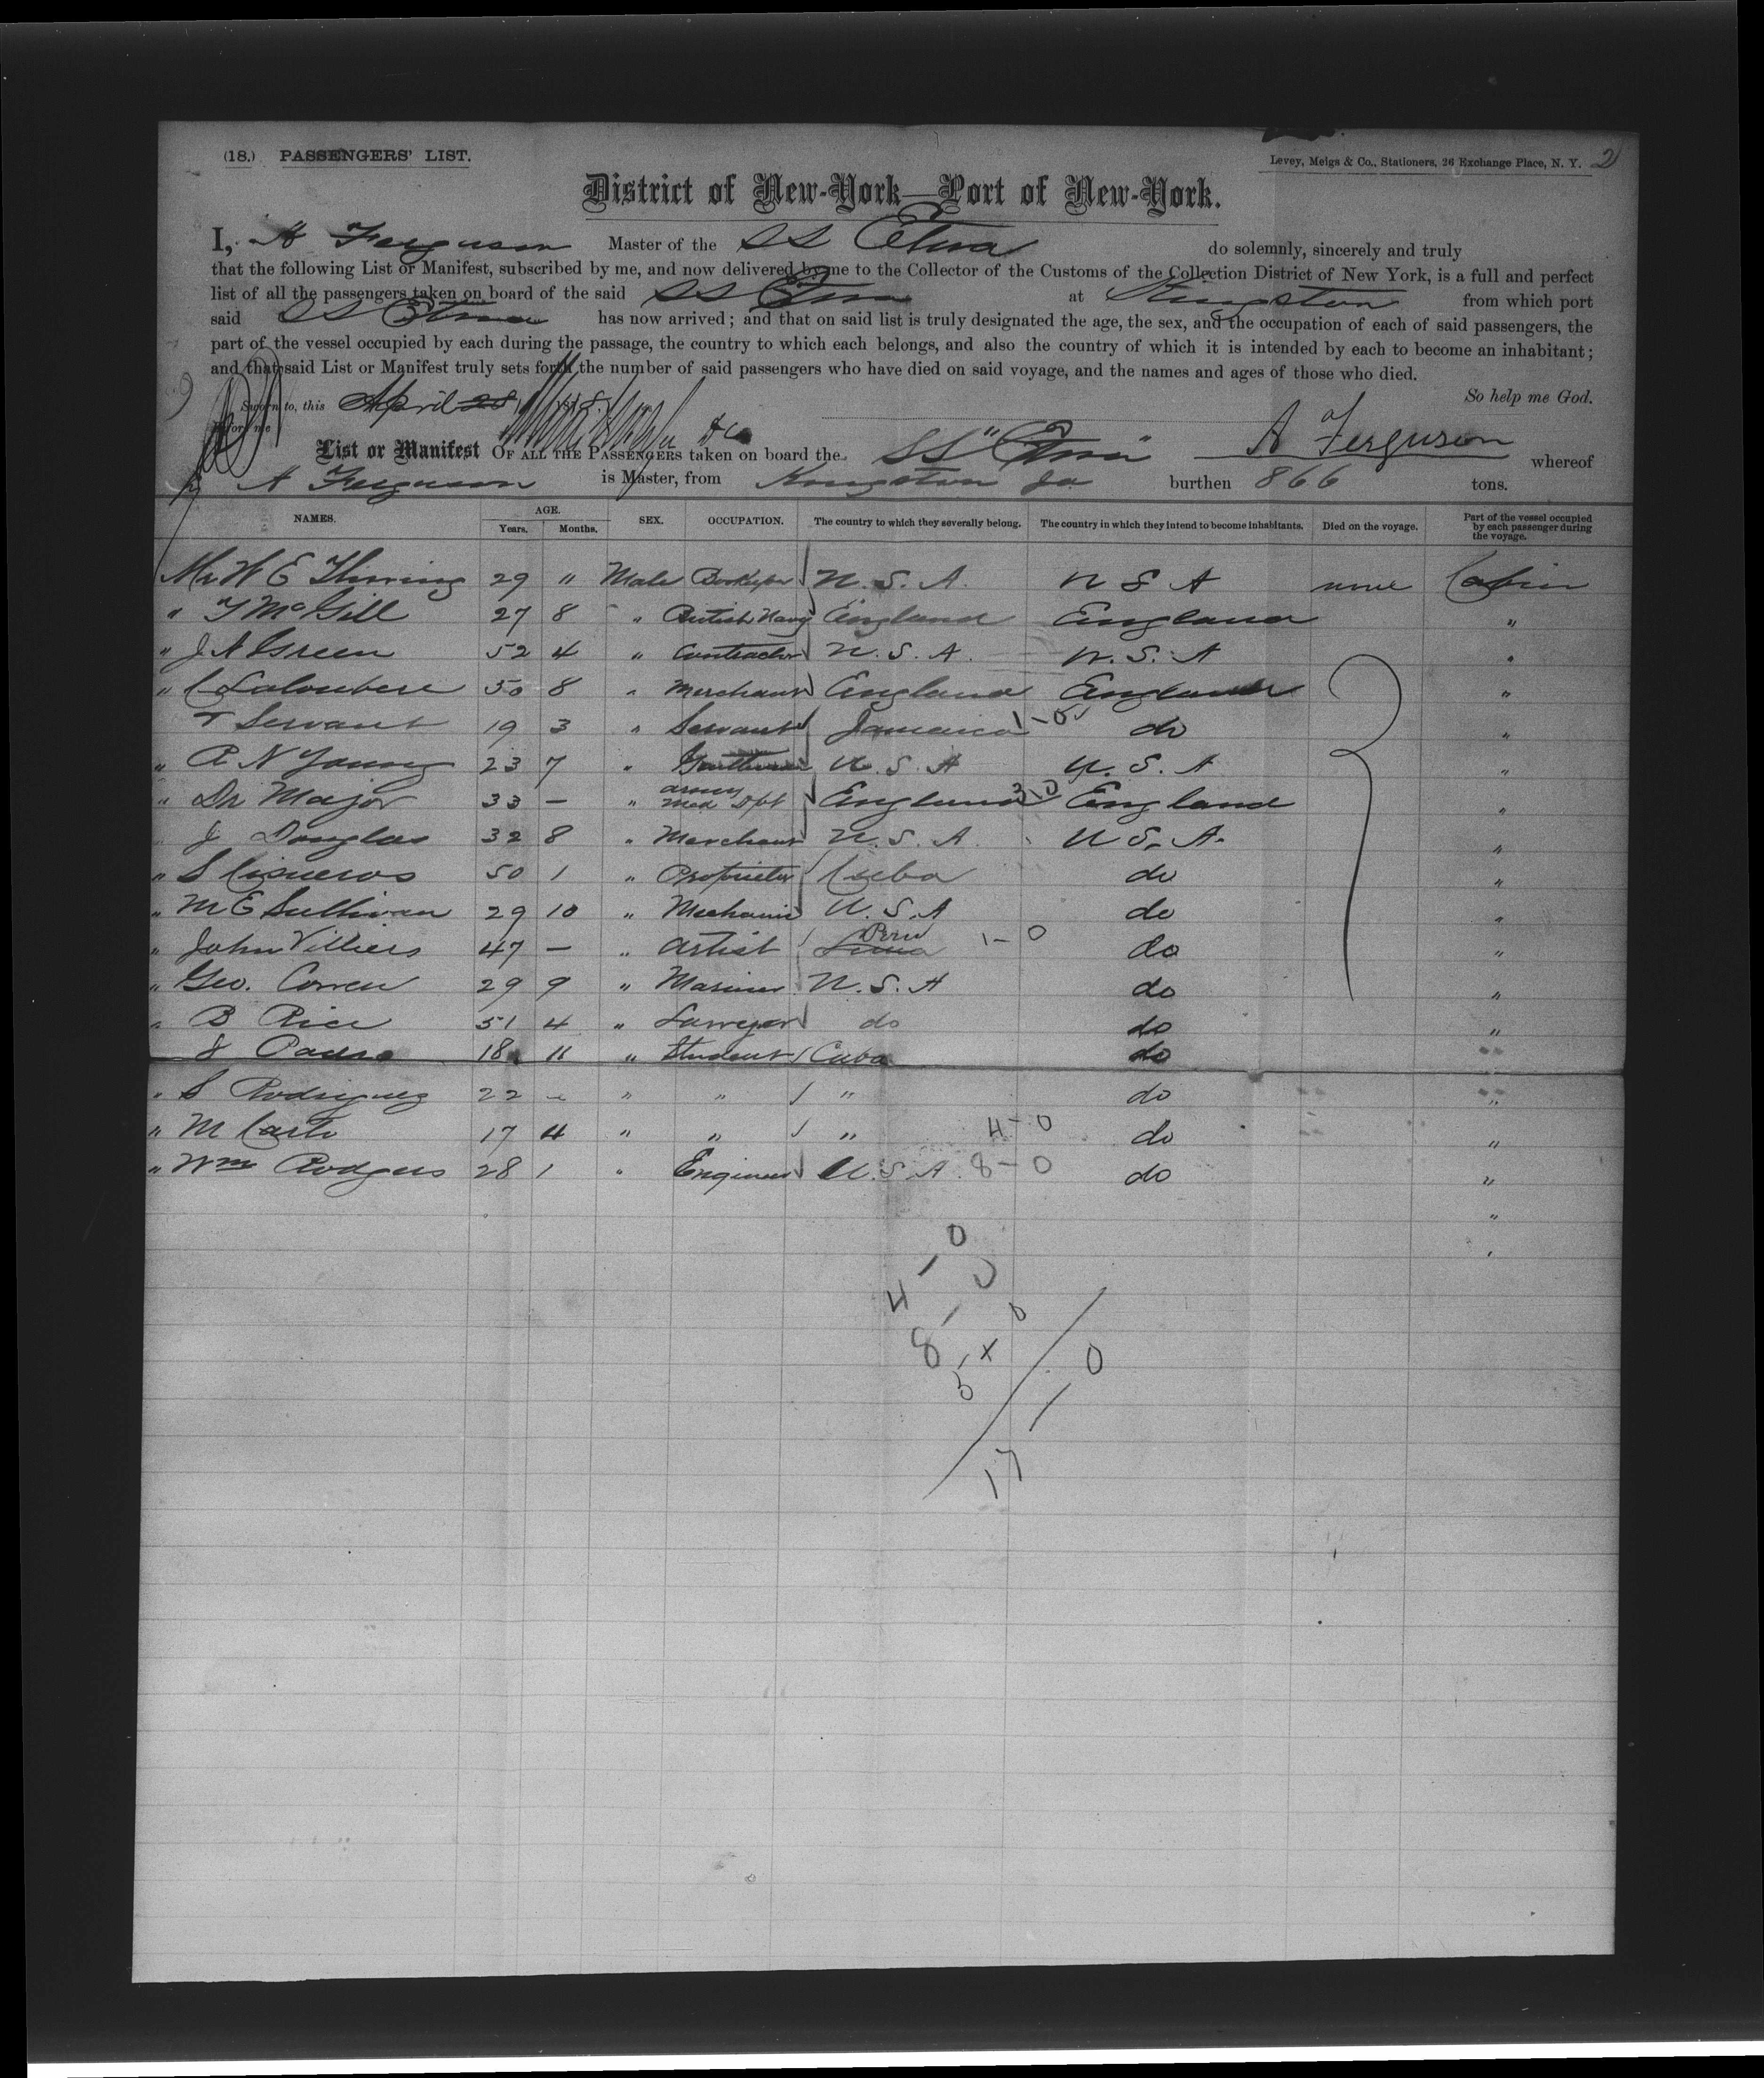 (18.) PASSENGERS' LIST.
Levey, Meigs & Co., Stationers, 26 Exchange Place, N. Y. 2
District of New-York—Port of New-York.
I, A Ferguson Master of the SS Etna do solemnly, sincerely and truly
that the following List or Manifest, subscribed by me, and now delivered by me to the Collector of the Customs of the Collection District of New York, is a full and perfect
list of all the passengers taken on board of the said SS Etna at Kingston from which port
said SS Etna has now arrived; and that on said list is truly designated the age, the sex, and the occupation of each of said passengers, the
part of the vessel occupied by each during the passage, the country to which each belongs, and also the country of which it is intended by each to become an inhabitant;
and that said List or Manifest truly sets forth the number of said passengers who have died on said voyage, and the names and ages of those who died.
So help me God.
Sworn to, this April 28, 187
before me
A Ferguson
List or Manifest OF ALL THE PASSENGERS taken on board the SS "Etna" whereof
A Ferguson is Master, from Kingston Ja burthen 866 tons.
NAMES. AGE. Years. Months. SEX. OCCUPATION. The country to which they severally belong. The country in which they intend to become inhabitants. Died on the voyage. Part of the vessel occupied by each passenger during the voyage.
Mr W E Thining 29 " Male Bookkeeper U. S. A. U S A none Cabin
" T McGill 27 8 " British Navy England England "
" J A Green 52 4 " Contractor U. S. A. U. S. A "
" C Laloubere 50 8 " Merchant England England "
+ Servant 19 3 " Servant Jamaica 1-0 do "
" R N Young 23 7 " Gentleman U. S. A U. S. A "
" Dr Major 33 — " army Med Dpt England 3-0 England "
" J Douglas 32 8 " Merchant U. S. A. U S. A. "
" S Cisneros 50 1 " Proprietor Cuba do "
" M E Sullivan 29 10 " Mechanic U. S. A do "
" John Villiers 47 — " Artist Lima Peru 1-0 do "
" Geo. Corren 29 9 " Mariner U. S. A do "
" B Rice 51 4 " Lawyer do do "
" 18 11 " Student Cuba do "
" S Rodriguez 22 - " " " do "
" M Carlo 17 4 " " " 4-0 do "
" Wm Rodgers 28 1 " Engineer U. S. A. 8-0 do "
4-0
8-0
5-0
17-0